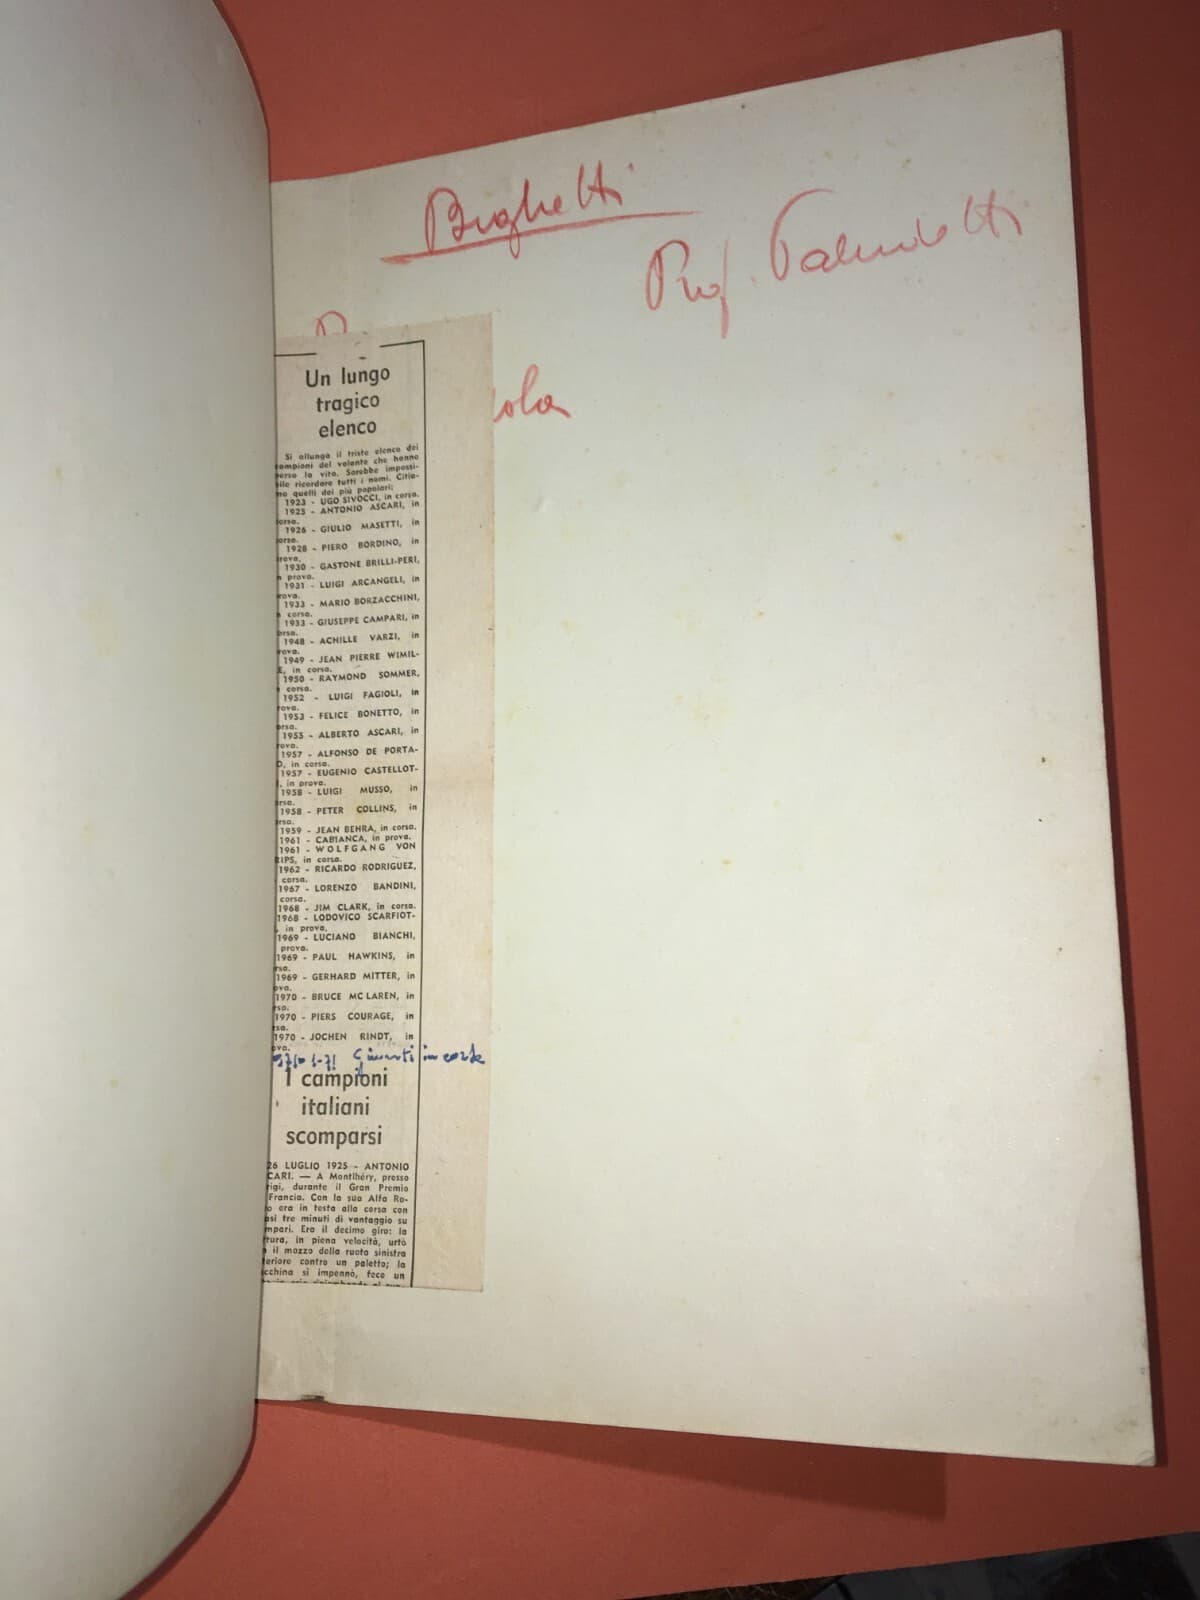 Bighetti
Prof.
Un lungo
tragico
elenco
Si allunga il triste elenco dei
campioni del volante che hanno
perso la vita. Sarebbe impossi-
bile ricordare tutti i nomi. Citia-
mo quelli dei più popolari:
1923 - UGO SIVOCCI, in corsa.
1925 - ANTONIO ASCARI, in
corsa.
1926 - GIULIO MASETTI, in
corsa.
1928 - PIERO BORDINO, in
rova.
1930 - GASTONE BRILLI-PERI,
n prova.
1931 - LUIGI ARCANGELI, in
rova.
1933 - MARIO BORZACCHINI,
corsa.
1933 - GIUSEPPE CAMPARI, in
orsa.
1948 - ACHILLE VARZI, in
rova.
1949 - JEAN PIERRE WIMIL-
E, in corsa.
1950 - RAYMOND SOMMER,
corsa.
1952 - LUIGI FAGIOLI, in
rova.
1953 - FELICE BONETTO, in
orsa.
1955 - ALBERTO ASCARI, in
rova.
1957 - ALFONSO DE PORTA-
O, in corsa.
1957 - EUGENIO CASTELLOT-
, in prova.
1958 - LUIGI MUSSO, in
orsa.
1958 - PETER COLLINS, in
rsa.
1959 - JEAN BEHRA, in corsa.
1961 - CABIANCA, in prova.
1961 - WOLFGANG VON
RIPS, in corsa.
1962 - RICARDO RODRIGUEZ,
corsa.
1967 - LORENZO BANDINI,
corsa.
1968 - JIM CLARK, in corsa.
1968 - LODOVICO SCARFIOT-
, in prova.
1969 - LUCIANO BIANCHI,
prova.
1969 - PAUL HAWKINS, in
rsa.
1969 - GERHARD MITTER, in
ova.
1970 - BRUCE MC LAREN, in
rsa.
1970 - PIERS COURAGE, in
rsa.
1970 - JOCHEN RINDT, in
ova.
Giunti in corsa
I campioni
italiani
scomparsi
26 LUGLIO 1925 - ANTONIO
CARI. — A Montlhéry, presso
rigi, durante il Gran Premio
Francia. Con la sua Alfa Ro-
o era in testa alla corsa con
asi tre minuti di vantaggio su
mpari. Era il decimo giro: la
ttura, in piena velocità, urtò
il mozzo della ruota sinistra
teriore contro un paletto; la
cchina si impennò, fece un